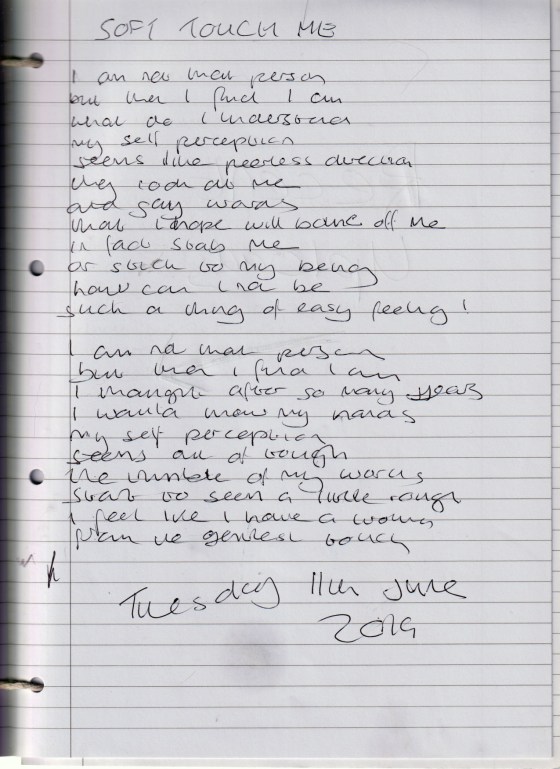 SOFT TOUCH ME
I am not that person
but then I find I am
what do I understand
my self perception
seems like peerless direction
they look at me
and say words
that I hope will bounce off me
in fact stab me
or stick to my being
how can I not be
such a thing of easy feeling!
I am not that person
but then I find I am
I thought after so many years
I would know my hands
my self perception
seems out of tough
the of my words
start to seem a little rough
I feel like I have a wound
from the gentlest touch
Tuesday 11th June
2019